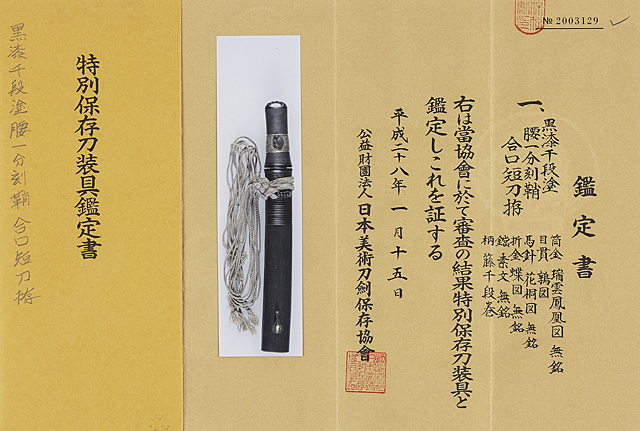 黒漆千段塗 腰一分刻鞘 合口短刀拵
特別保存刀装具鑑定書
№ 2003129
鑑定書
一、黒漆千段塗
腰一分刻鞘
合口短刀拵
筒金 瑞雲鳳凰図 無銘
目貫 鶉図
馬針 花桐図 無銘
折金 蝶図 無銘
鐺 素文 無銘
柄 藤千段巻
右は當協會に於て審査の結果特別保存刀装具と
鑑定しこれを証する
平成二十八年一月十五日
公益財團法人 日本美術刀劍保存協會